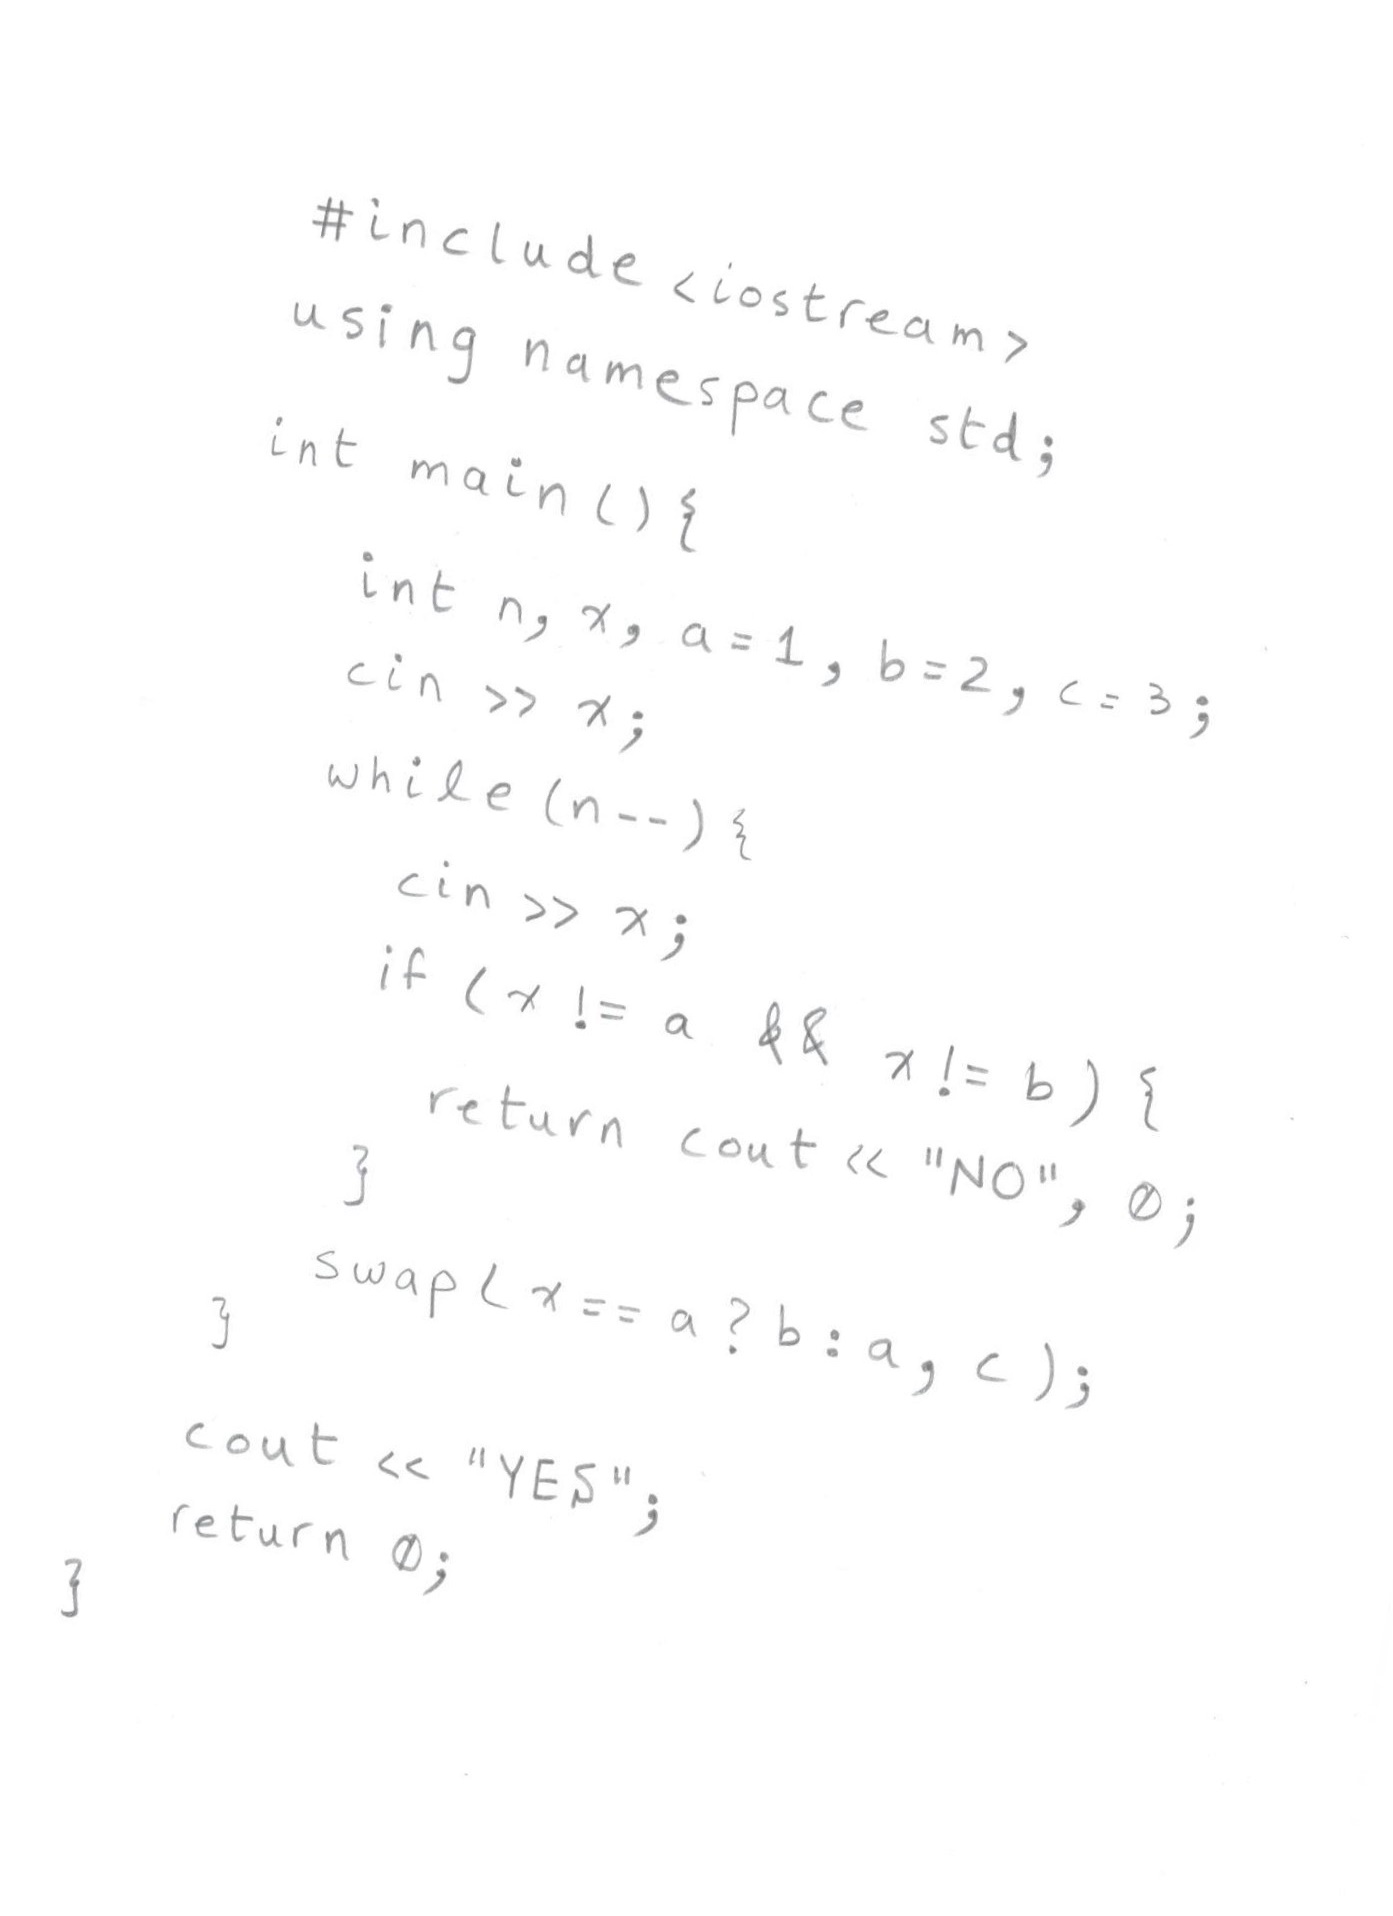 #include <iostream>
using namespace std;
int main(){
int n, x, a=1, b=2, c=3;
cin >> x;
while(n--){
cin >> x;
if (x != a && x != b) {
return cout << "NO", 0;
}
swap(x==a?b:a, c);
}
cout << "YES";
return 0;
}